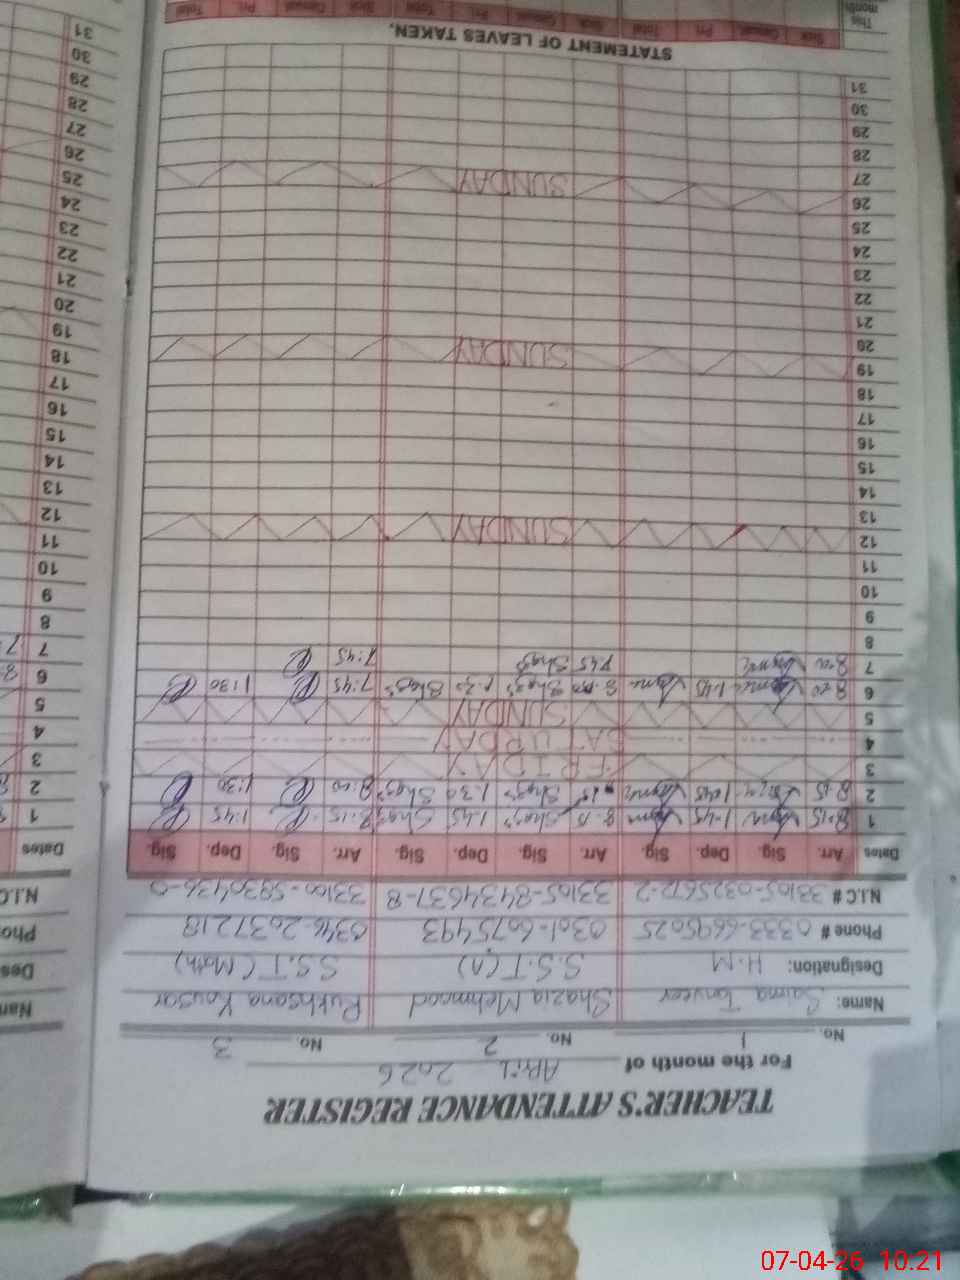 TEACHER'S ATTENDANCE REGISTER
For the month of APRIL 2026
No. 1 No. 2 No. 3
Name: Saima Tanveer Shazia Mehmood Rukhsana Kousar
Designation: H.M S.S.T(A) S.S.T (Math)
Phone # 0333-6695025 0301-6075493 0346-2037218
N.I.C # 33105-0325672-2 33105-8434637-8 33100-5930436-0
Dates Arr. Sig. Dep. Sig. Arr. Sig. Dep. Sig. Arr. Sig. Dep. Sig.
1 8:15 1:45 8:15 1:45 8:15 1:45
2 8:15 1:45 1:30 8:00 1:30
3 FRIDAY
4 SATURDAY
5 SUNDAY
6 8:00 1:45 8:00 1:30 7:45 1:30
7 8:00 7:45 7:45
8
9
10
11
12 SUNDAY
13
14
15
16
17
18
19 SUNDAY
20
21
22
23
24
25
26 SUNDAY
27
28
29
30
31
STATEMENT OF LEAVES TAKEN.
This month
Sick Casual Pri. Total Sick Casual Pri. Total Sick Casual Pri. Total
Dates
1
2
3
4
5
6
7
8
9
10
11
12
13
14
15
16
17
18
19
20
21
22
23
24
25
26
27
28
29
30
31
07-04-26 10:21